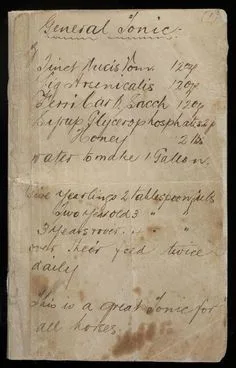 (1)
General Tonic.
Rx
Tinct Nucis Vom. 12oz
Liq Arsenicalis 12oz
Ferri Carb Sacch 12oz
Syrup Glycerophosphates
Honey 2 lbs
water to make 1 Gallon.
Give yearlings 2 tablespoonfuls
Two year old 3 " "
3 years & over " "
over their feed twice
daily
This is a great Tonic for
all horses.